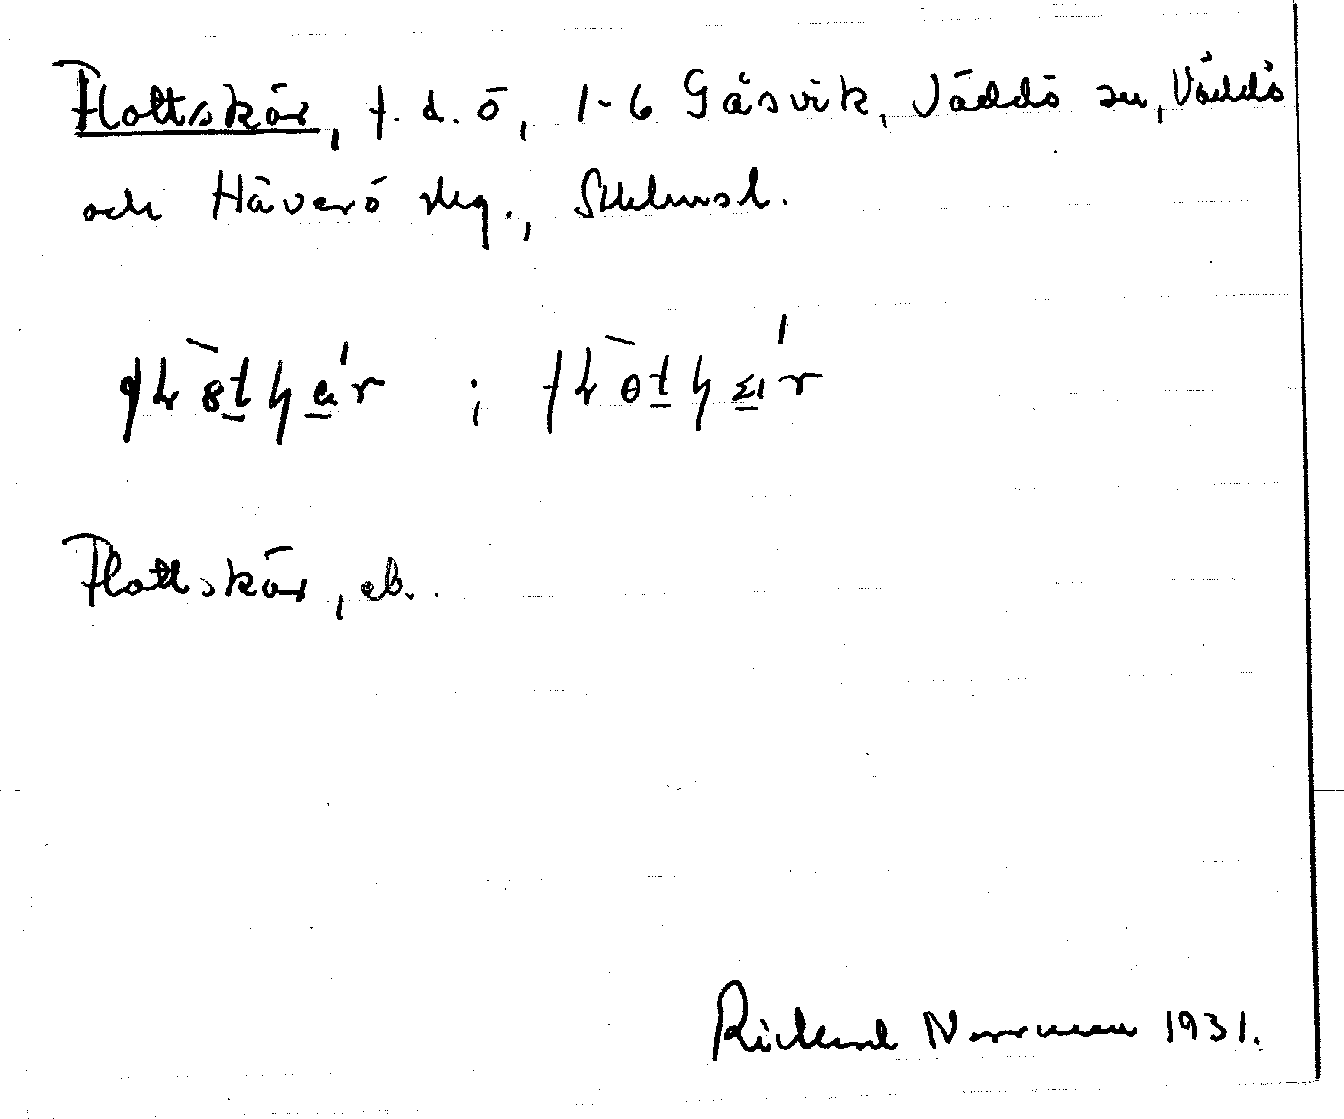 Flottskär, f. d. ö, 1-6 Gåsvik, Väddö sn, Väddö
och Häverö skg., Sthlmsl.
Flottskär, eb.
Rickard Norrman 1931.